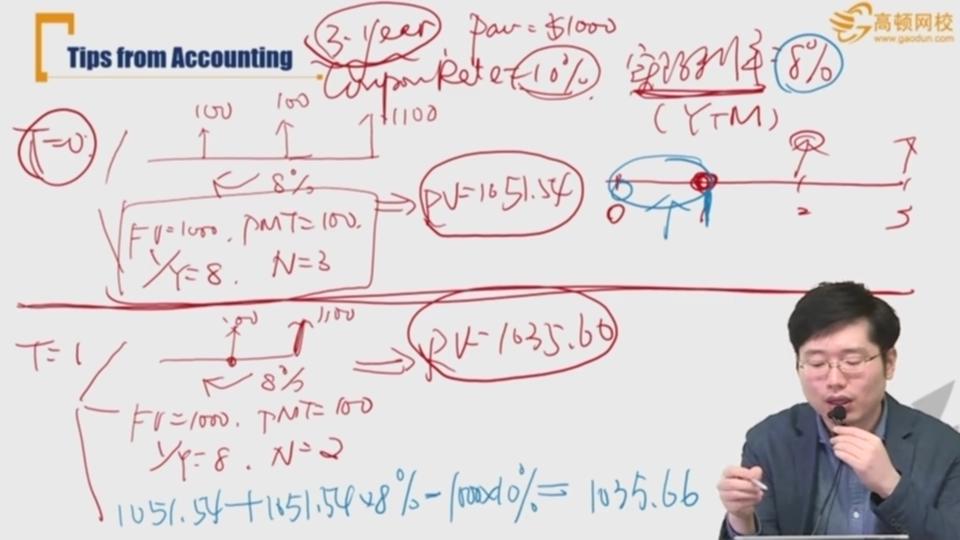 高顿网校
www.gaodun.com
Tips from Accounting
3-year
Par=$1000
Coupon Rate=10%
实际利率=8%
(YTM)
T=0
100
100
1100
8%
FV=1000. PMT=100.
I/Y=8. N=3
PV=1051.54
0
1
2
3
T=1
100
1100
8%
FV=1000. PMT=100
I/Y=8. N=2
PV=1035.66
1051.54+1051.54×8%-1000×10%=1035.66